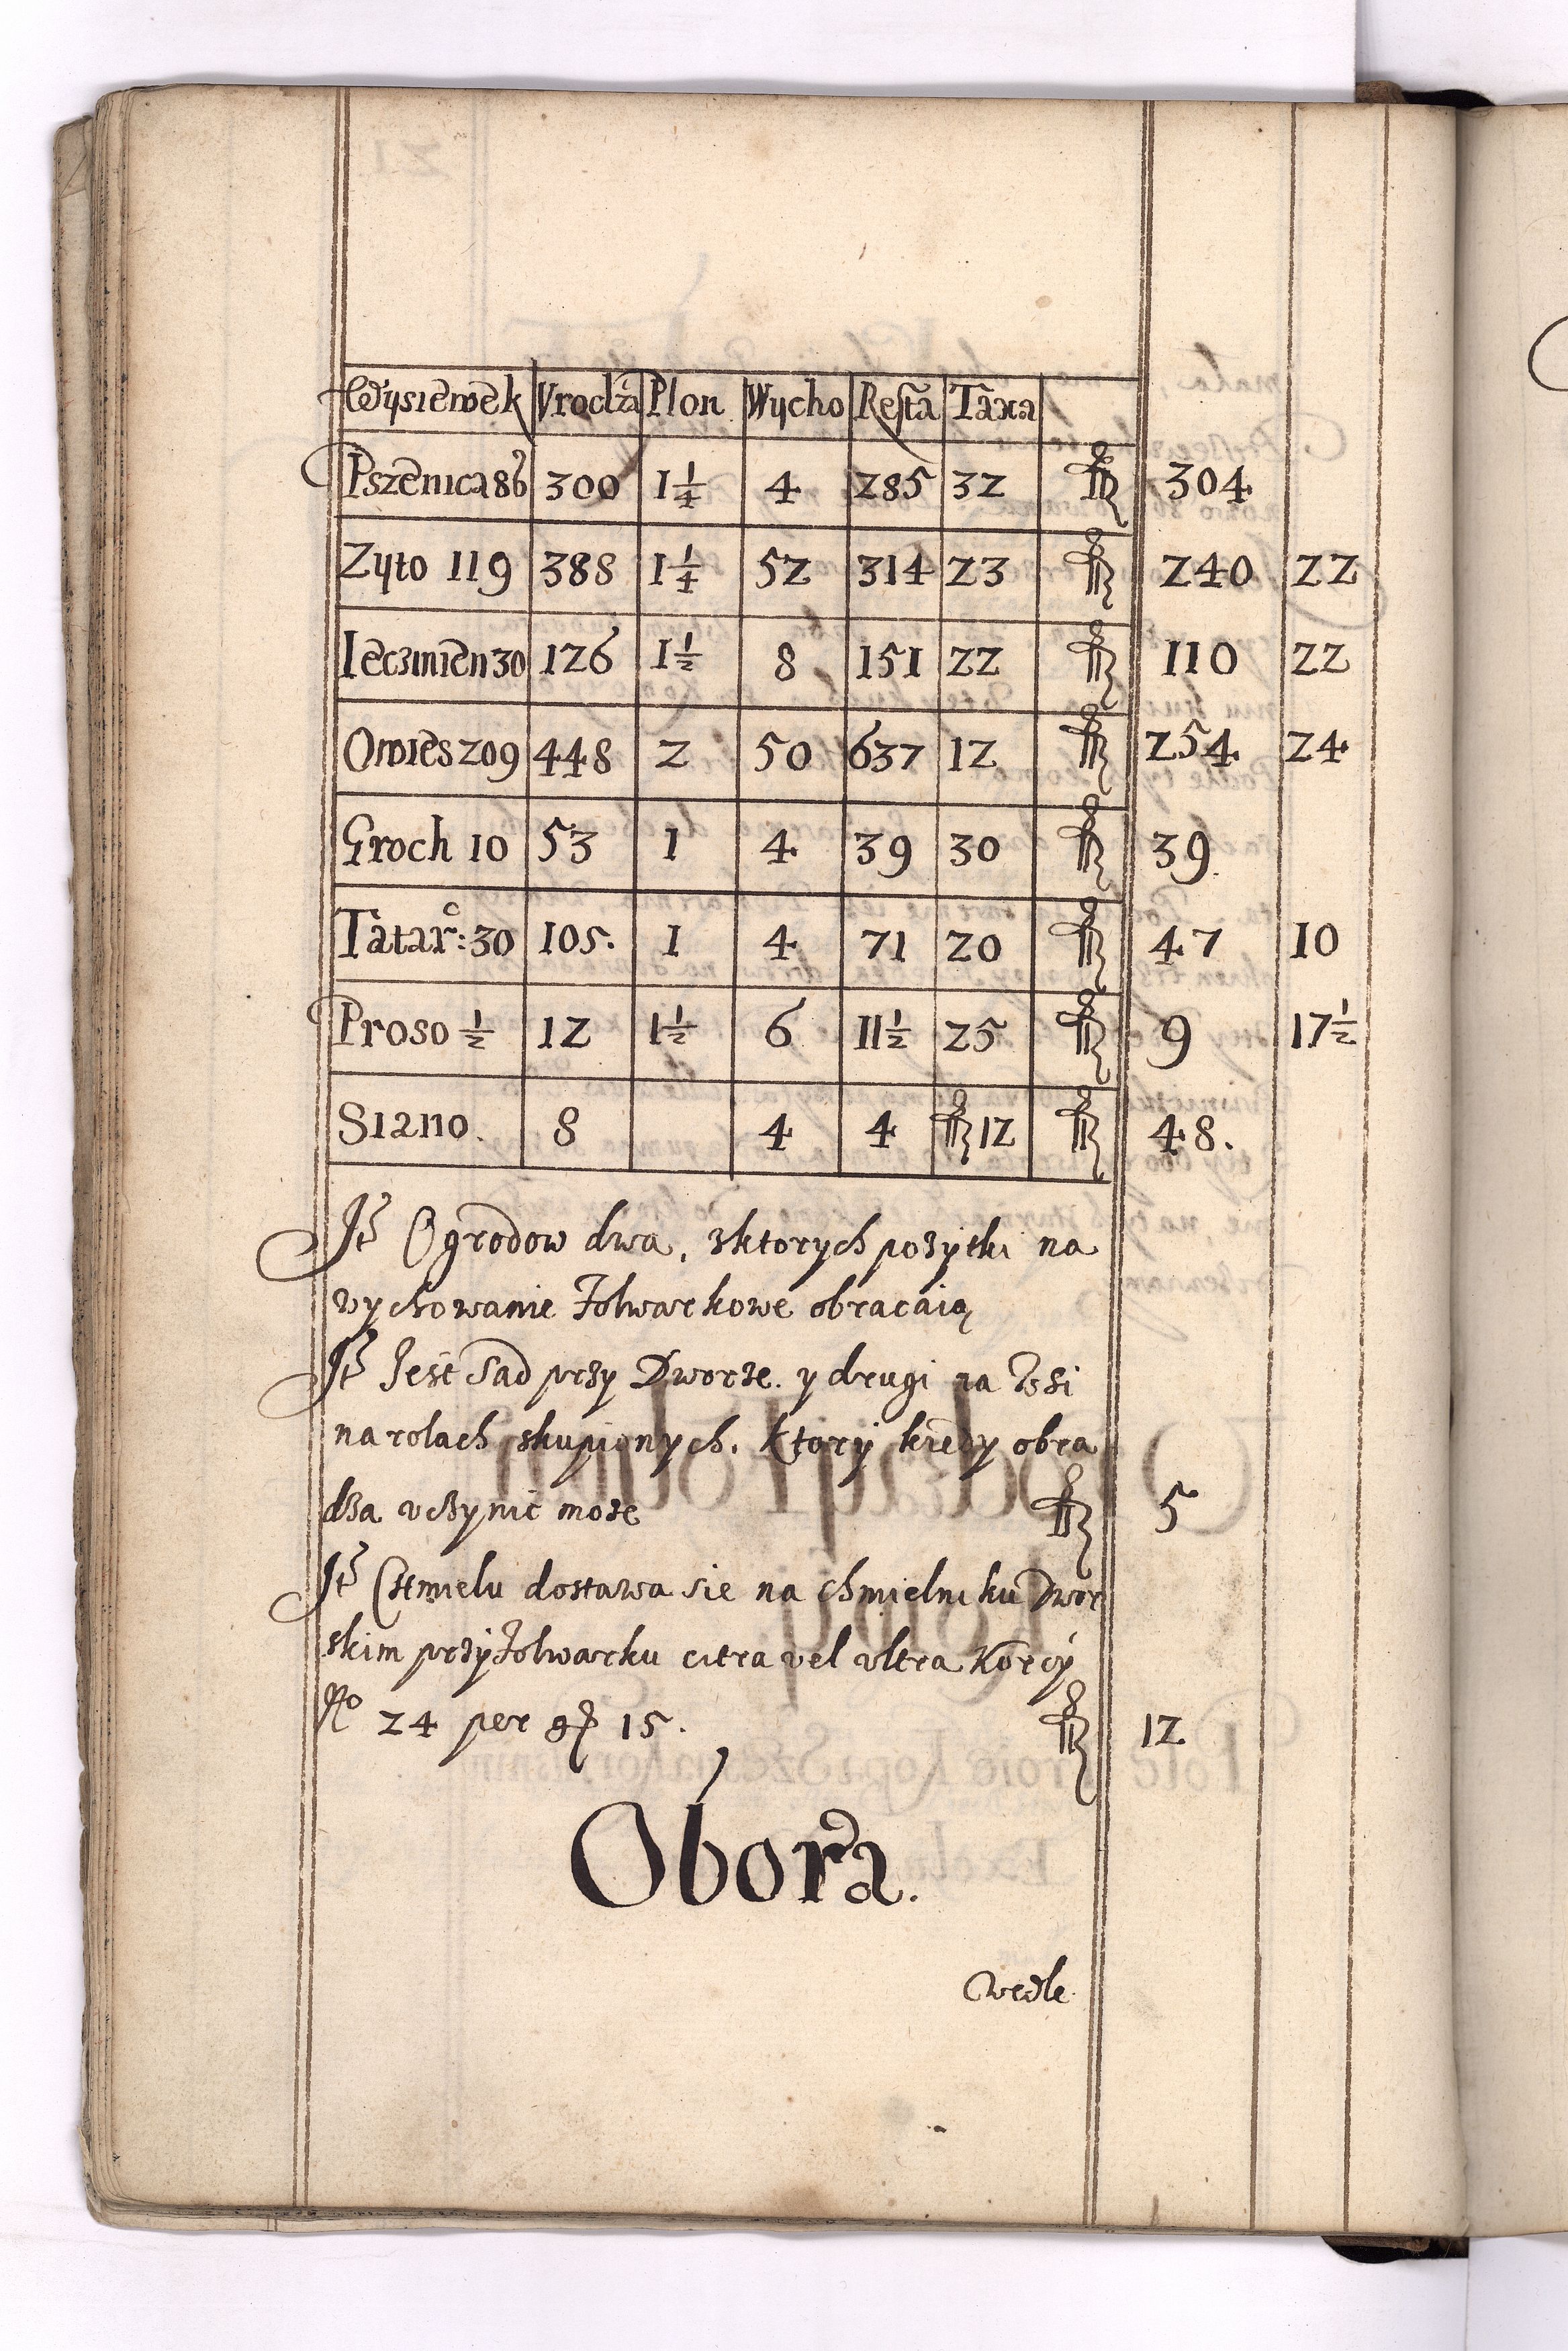 Wysiewek Vrodza Plon Wycho Resta Taxa
Pszenica 86 300 1 1/4 4 285 32 fl 304
Zyto 119 388 1 1/4 52 314 23 fl 240 22
Ieczmien 30 126 1 1/2 8 151 22 fl 110 22
Owies 209 448 2 50 637 12 fl 254 24
Groch 10 53 1 4 39 30 fl 39.
Tatarc: 30 105. 1 4 71 20 fl 47 10
Proso 1/2 12 1 1/2 6 11 1/2 25 fl 9 17 1/2
Siano. 8 4 4 fl 12 fl 48.
It Ogrodow dwa, zktorych pozytki na
wychowanie folwarkowe obracaią
It Jest Sad przy Dworze. y drugi na Wsi
na rolach skupionych. ktory kiedy obra
dza vczynić moze fl 5
It Chmielu dostawa sie na chmielniku Dwor
skim przy folwarku citra vel vltra Korcy
No 24 per gr 15. fl 12
Obora.
Wedle